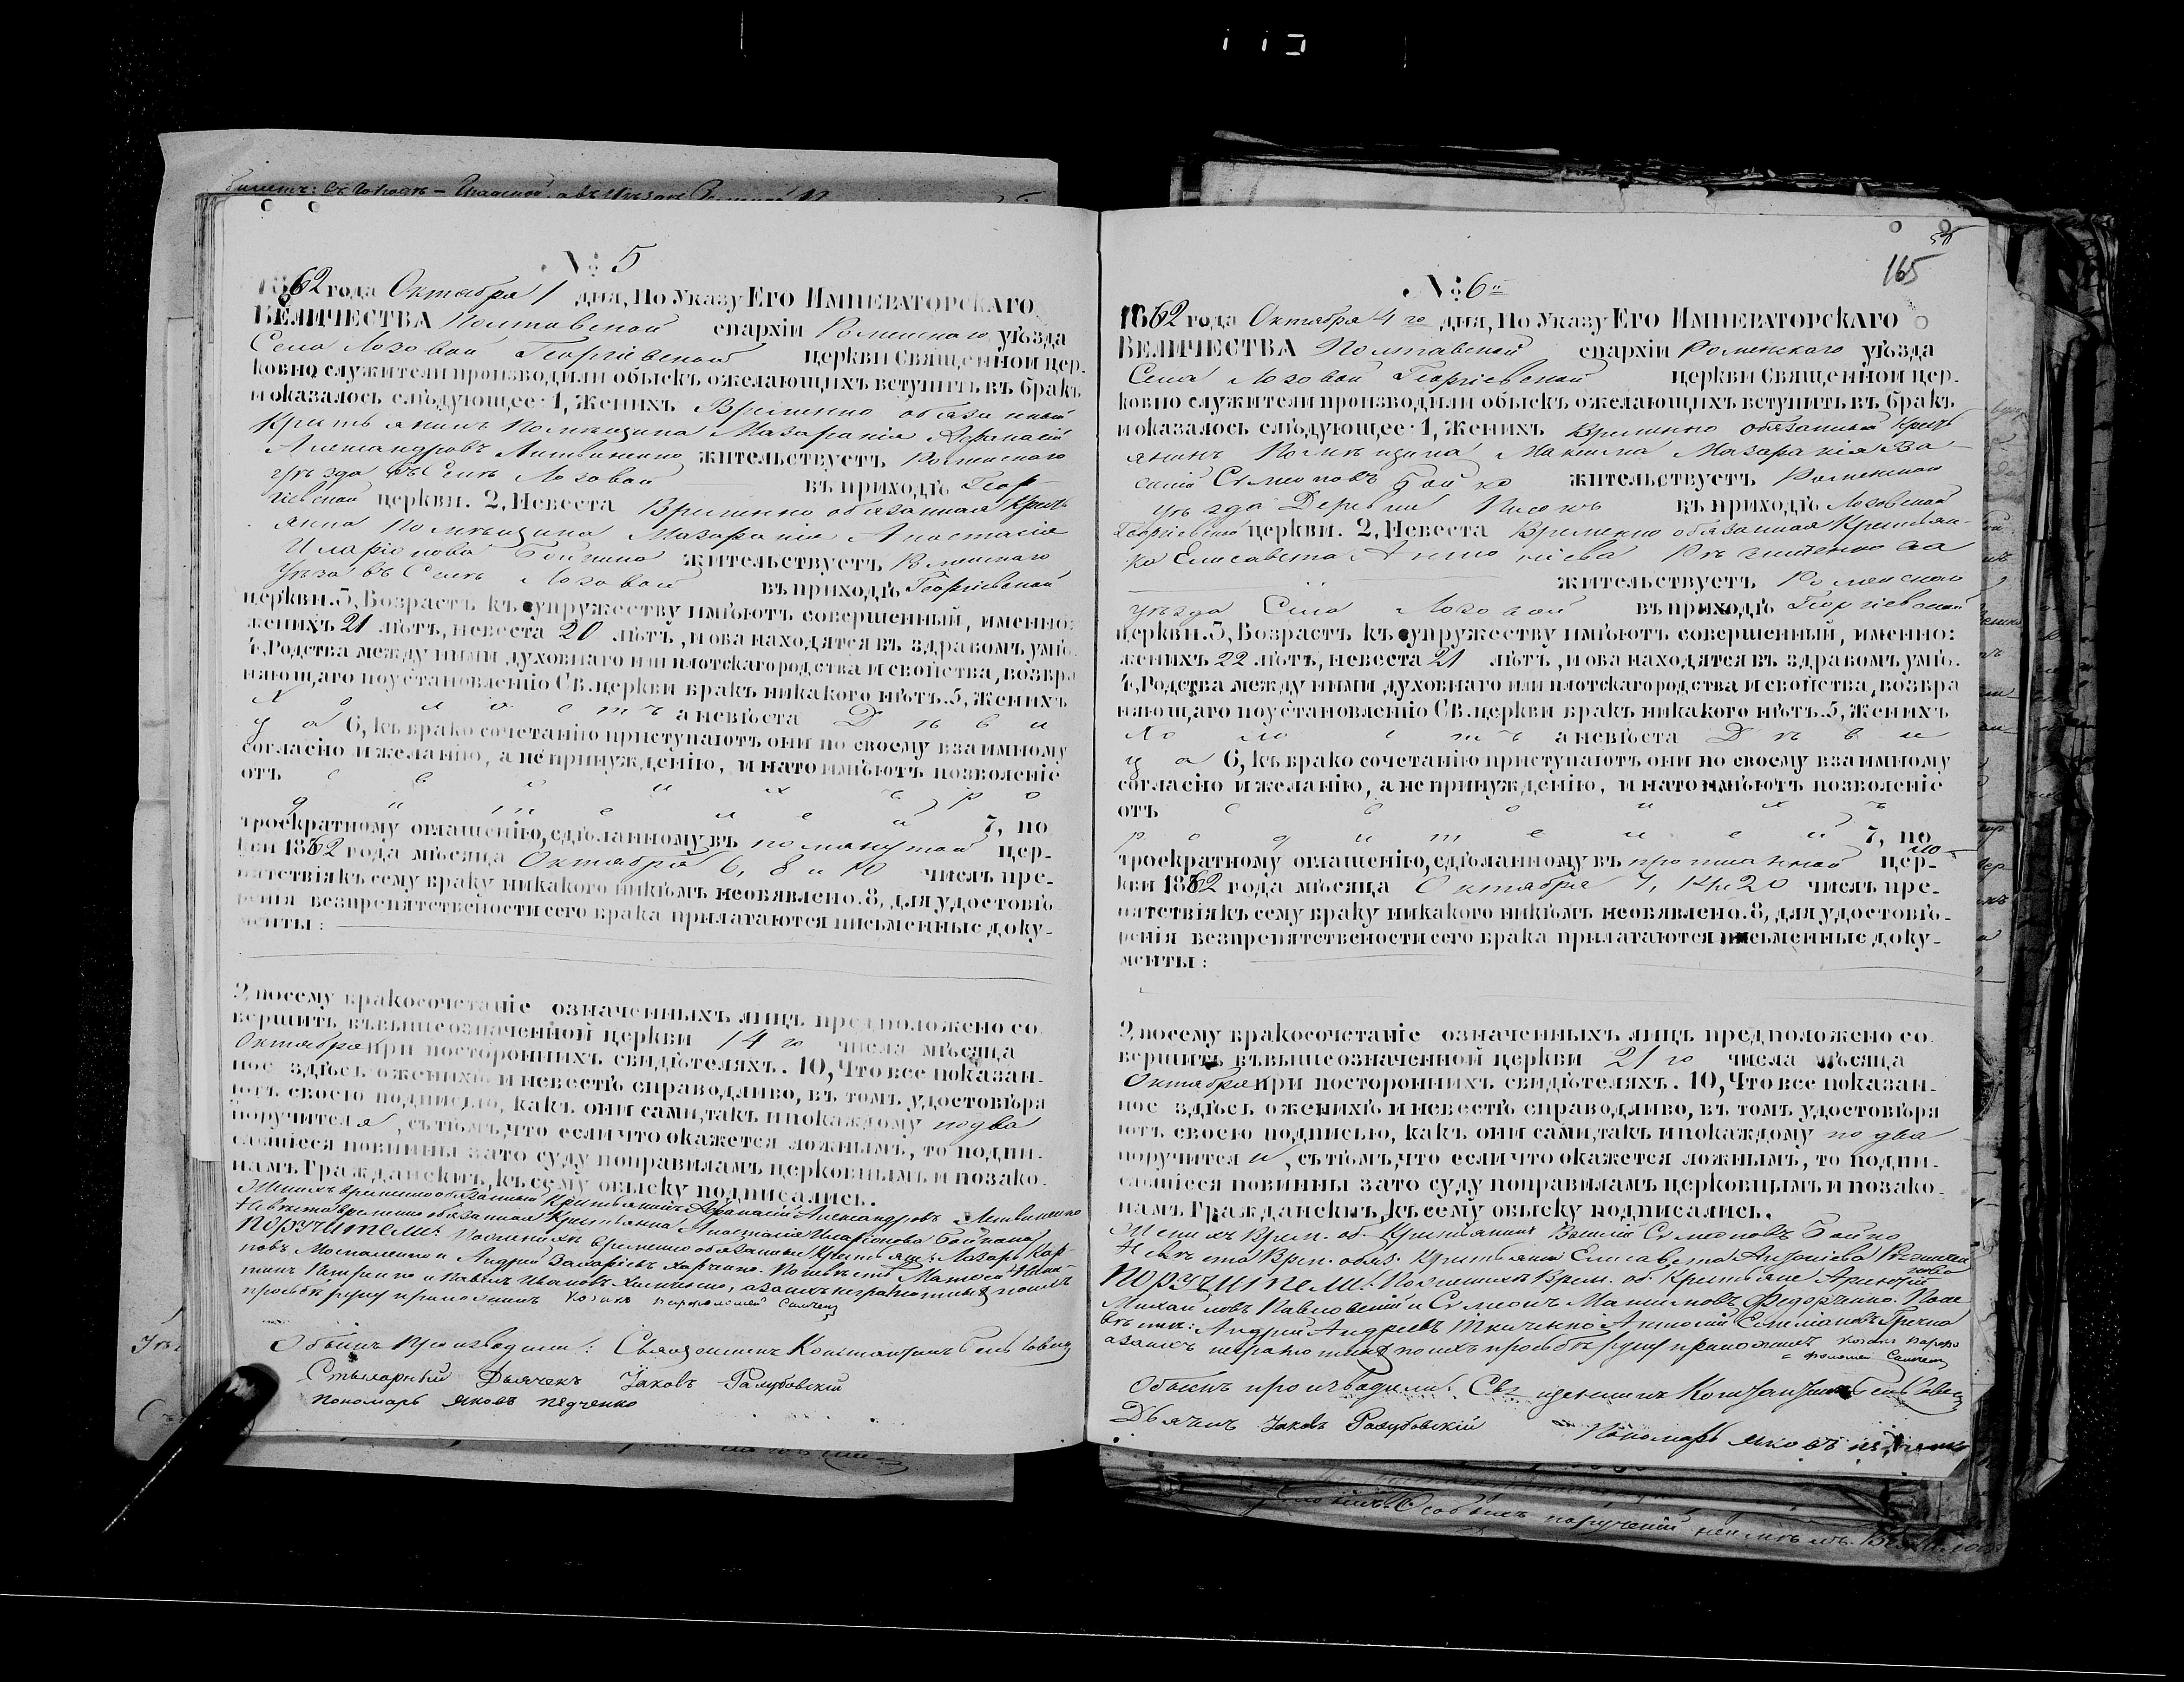 № 5
1862 года Октября 1 дня, По Указу Его Императорскаго
Величества Полтавской епархіи Роменскаго уѣзда
Села Лозовой Георгіевской церкви Священном цер-
ковно служители производили обыскъ ожелающихъ вступить въ бракъ
и оказалось слѣдующее. 1, Женихъ Временно обязанный
Крестьянинъ Помѣщика Мазаракія Афанасій
Александровъ Литвиненко жительствуетъ Роменскаго
уѣзда въ Селѣ Лозовой въ приходѣ Геор-
гіевской церкви. 2, Невеста Временно обязанная Кресть
янка Помѣщика Мазаракія Анастасія
Иларіонова жительствуетъ Роменскаго
Уѣзда въ Селѣ Лозовой въ приходѣ Георгіевской
церкви. 3, Возрастъ къ супружеству имѣютъ совершенный, именно:
женихъ 21 лѣтъ, невеста 20 лѣтъ, и ова находятся въ здравомъ умѣ.
4, Родства между ними духовнаго или плотскаго родства и свойства, возвра
няющаго поустановленію Св. церкви бракъ никакого нѣтъ. 5, Женихъ
Холостъ а невѣста Дѣви
ца 6, къ врако сочетанію приступаютъ они по своему взаимному
согласію и желанію, а не принужденію, и на то имѣютъ позволеніе
отъ своихъ ро
дителей 7, по
троекратному оглашенію, сдѣланному въ помянутой цер-
кви 1862 года мѣсяца Октября 6, 8 и 10 числъ пре-
пятствія къ сему враку никакого никѣмъ необявлено. 8, для удостовѣ
ренія везпрепятствености сего врака прилагаются письменные доку-
менты:
9, посему вракосочетаніе означенныхъ лицъ предположено со
вершить въ вышеозначенной церкви 14 го числа мѣсяца
Октября при постороннихъ свидѣтеляхъ. 10, Что все показан-
ное здѣсь о женихѣ и невестѣ справодливо, въ томъ удостовѣря
ютъ своею подписью, какъ они сами, такъ и покаждому по два
поручителя, сътѣмъ, что если что окажется ложнымъ, то подпи-
савшіеся повинны зато суду поправиламъ церковнымъ и позако-
намъ Гражданскит, къ сему овыску подписались.
Женихъ временно обязанный Крестьянинъ Афанасій Александровъ Литвиненко
Невѣста временно обязанная Крестьянка Анастасія Иларіонова
Поручители: По женихѣ временно обязанные Крестьяне: Лазарь Кар-
повъ Москаленко и Андрей Захаріевъ Харченко. По невѣстѣ Матфей
Петренко и Павелъ Ивановъ а за нихъ неграмотныхъ по ихъ
прозьбѣ руку приложилъ Козакъ
Обыскъ производили: Священникъ Константинъ
Дьячекъ Іаковъ Галубовскій
пономарь яковъ педченко
55
165
№ 6й
1862 года Октября 4 го дня, По Указу Его Императорскаго
Величества Полтавской епархіи Роменскаго уѣзда
Села Лозовой Георгіевской церкви Священном цер-
ковно служители производили обыскъ ожелающихъ вступить въ бракъ
и оказалось слѣдующее. 1, Женихъ Временно обязанный Кресть
янинъ Помѣщика Максима Мазаракія Ва-
силій Симеоновъ Бойко жительствуетъ Роменскаго
уѣзда Деревни въ приходѣ Лозовской
Георгіевской церкви. 2, Невеста Временно обязанная Крестьян-
ка Елисавета Антоніева
жительствуетъ Роменскаго
уѣзда Села Лозовой въ приходѣ Георгіевской
церкви. 3, Возрастъ къ супружеству имѣютъ совершенный, именно:
женихъ 22 лѣтъ, невеста 21 лѣтъ, и ова находятся въ здравомъ умѣ.
4, Родства между ними духовнаго или плотскаго родства и свойства, возвра
няющаго поустановленію Св. церкви бракъ никакого нѣтъ. 5, Женихъ
Холостъ а невѣста Дѣви
ца 6, къ врако сочетанію приступаютъ они по своему взаимному
согласію и желанію, а не принужденію, и на то имѣютъ позволеніе
отъ своихъ
родителей 7, по
троекратному оглашенію, сдѣланному въ цер-
кви 1862 года мѣсяца Октября 7, 14 и 20 числъ пре-
пятствія къ сему враку никакого никѣмъ необявлено. 8, для удостовѣ-
ренія везпрепятствености сего врака прилагаются письменные доку-
менты:
9, посему вракосочетаніе означенныхъ лицъ предположено со
вершить въ вышеозначенной церкви 21 го числа мѣсяца
Октября при постороннихъ свидѣтеляхъ. 10, Что все показан-
ное здѣсь о женихѣ и невестѣ справодливо, въ томъ удостовѣря
ютъ своею подписью, какъ они сами, такъ и покаждому по два
поручителя, сътѣмъ, что если что окажется ложнымъ, то подпи-
савшіеся повинны зато суду поправиламъ церковнымъ и позако-
намъ Гражданскит, къ сему овыску подписались.
Женихъ Врем. об. Крестьянинъ Василій Симеоновъ Бойко
Невѣста Врем. обяз. Крестьянка Елисавета Антоніева
Поручители: По женихѣ Врем. об. Крестьяне
Михайловъ Павловскій и Симеонъ Максимовъ Федорченко. По не
вѣстѣ: Андрей Андреевъ Ткаченко Антоній
а за нихъ неграмотныхъ по ихъ прозьбѣ руку приложилъ козакъ
Обыскъ производили: Священникъ Константинъ
Дьячекъ Іаковъ Галубовскій Пономарь яковъ педченко